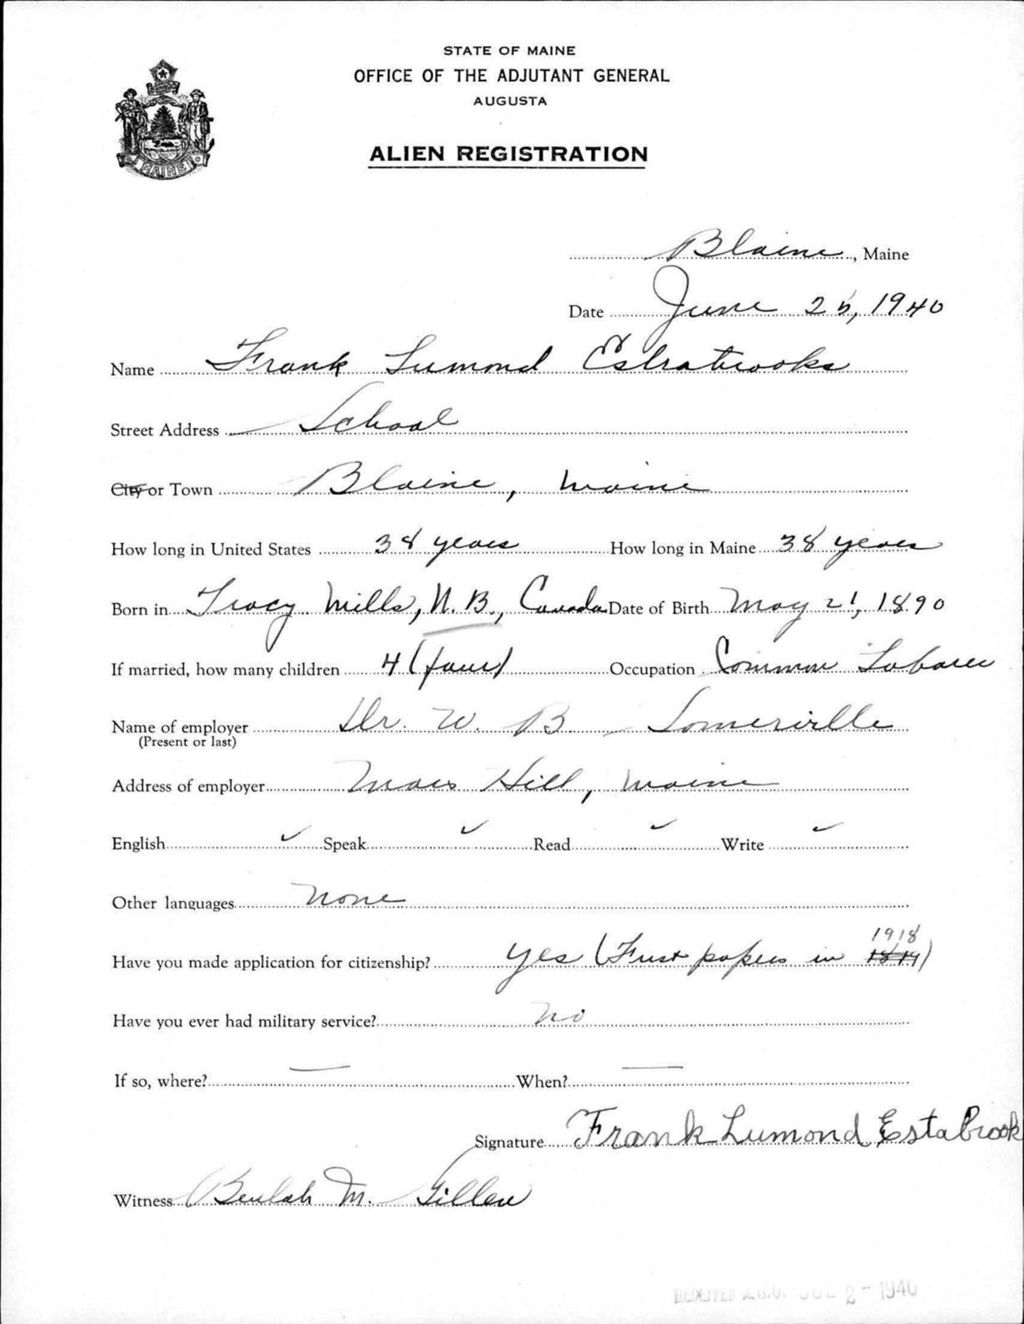 STATE OF MAINE
OFFICE OF THE ADJUTANT GENERAL
AUGUSTA
MAINE
ALIEN REGISTRATION
Blaine, Maine
Date June 25, 1940
Name Frank Lumond Estrabrooks
Street Address School
City or Town Blaine, Maine
How long in United States 38 years How long in Maine 38 years
Born in Tracy Mills, N.B., Canada Date of Birth May 21, 1890
If married, how many children 4 (four) Occupation Common Laborer
Name of employer Dr. W. B. Somerville
(Present or last)
Address of employer Mars Hill, Maine
English ✓ Speak ✓ Read ✓ Write ✓
Other languages None
Have you made application for citizenship? yes (First papers in 1918)
Have you ever had military service? No
If so, where? — When? —
Signature Frank Lumond Estabrook
Witness Beulah M. Gillen
RECEIVED A.G.O. JUL 2 - 1940